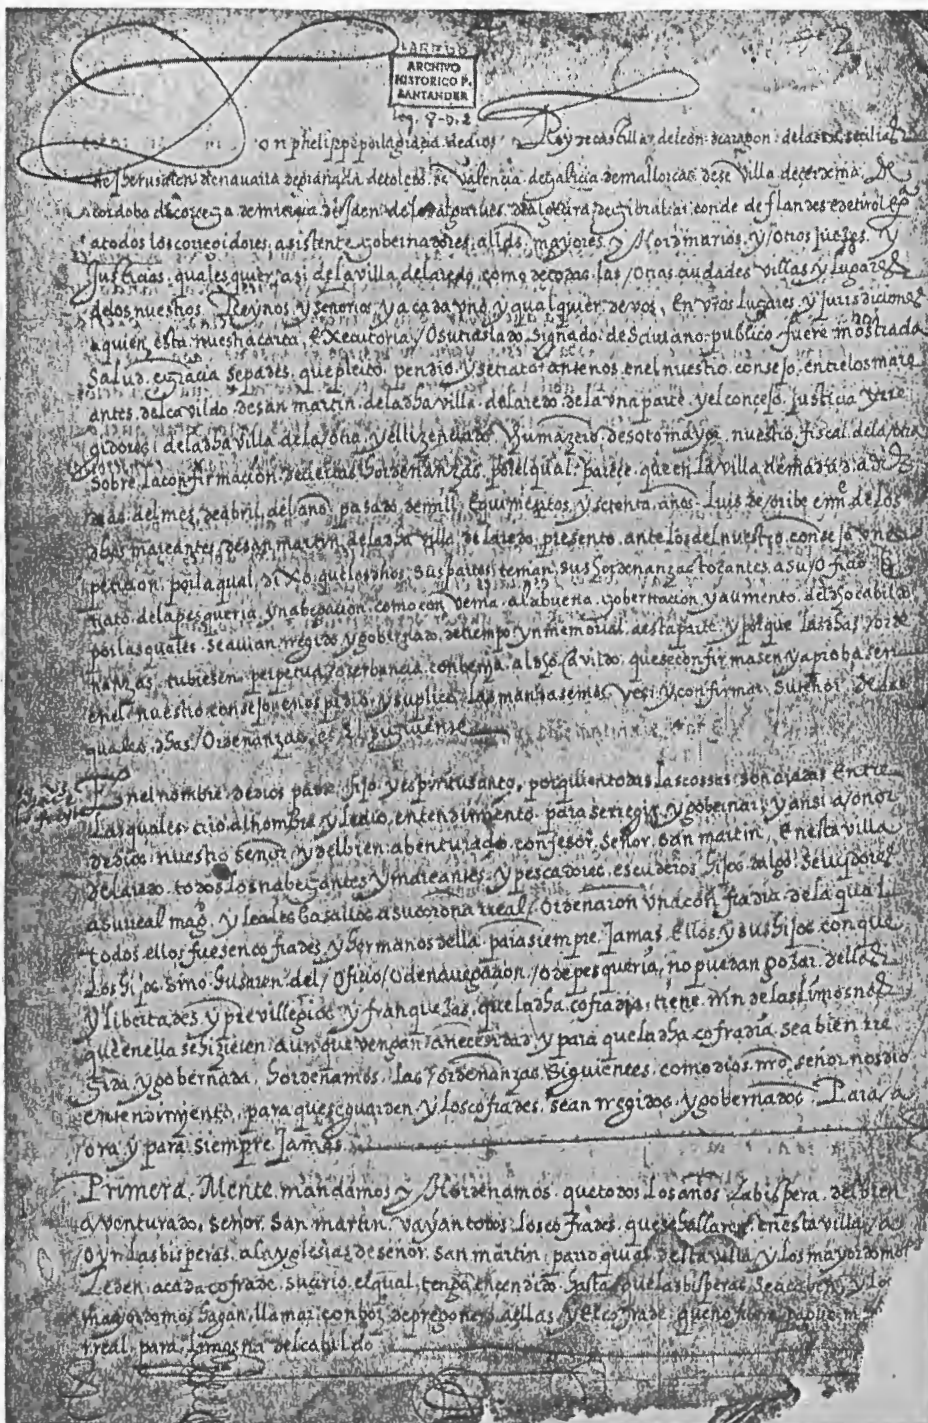 LAREDO
2
ARCHIVO
HISTORICO P.
SANTANDER
leg. 8-D. 2
on phelippe por la gracia de dios Rey de castilla de leon de aragon de las dos secilias
de Jherusalen de navarra de granada de toledo de valencia de galicia de mallorcas de se villa de cerdeña de
cordoba de corcega de murcia de Jaen de los algarues de algezira de gibraltar conde de flandes e de tirol etª
a todos los corregidores, asistente gobernadores, allds mayores y Hordinarios y /otros juezes y
Justicias quales quier asi de la villa de laredo como de todas las /otras ciudades villas y lugares
de los nuestros Reynos y señorios y a cada vno y qualquier de vos, En vros lugares y jurisdiciones
a quien esta nuestra carta, eXecutoria /O su traslado signado de Scriuano publico fuere mostrada
Salud e gracia sepades, que pleito pendio y se trato ante nos en el nuestro consejo entre los mare
antes del cavildo de san martin de la dha villa de laredo de la vna parte y el concejo Justicia y rre
gidores de la dha villa de la /otra y el lizenciado de sotomayor nuestro fiscal de la /otra
Sobre la confirmacion de ciertas Hordenanças por el qual parece que en la villa de madrid a
dias del mes de abril del año pasado de mill e quinientos y setenta años Luis de /oribe en nᵉ de los
dhos mareantes de san martin de la dha villa de laredo presento ante los del nuestro consejo vna
peticion por la qual diXo que los dhos sus partes tenian sus Hordenanças tocantes a su /oficio
trato de la pesqueria y nabegacion como con venia a la buena gobernacion y aumento del dho cabildo
por las quales se auian rregido y gobernado de tiempo ynmemorial a esta parte y porque las dhas /orde
nanzas tubiesen perpetua /oserbancia conbenia al dho Cavildo que se confirmasen y aprobasen
en el nuestro consejo e nos pidio y suplico las mandasemos ver y confirmar Su tenor de las
quales dhas /Ordenanzas es El siguiente
En el nombre de dios padre hijo y espiritu santo, por quien todas las cossas son criadas Entre
Las quales crio al hombre y le dio entendimiento para se rregir y gobernar y ansi a /onor
de dios nuestro señor y del bien abenturado confesor señor san martin, En esta villa
de laredo todos los nabegantes y mareantes y pescadores, escuderos hijos dalgo seruidores
a su real magᵈ y leales basallos a su corona rreal /Ordenaron vna con fradia de la qual
todos ellos fuesen cofrades y hermanos della para siempre Jamas. Ellos y sus hijos con que
Los hijos sino husaren del /Oficio /O de nauegacion /o de pesqueria, no puedan gozar della
y libertades y previllegios y franquezas, que la dha cofradia, tiene nin de las limosnas
que en ella se hizieren aunque vengan a necesidad y para que la dha cofradia sea bien rre
gida y gobernada, hordenamos las /ordenanzas siguientes como dios nro señor nos dio
entendimiento, para que se guarden y Los cofrades sean rregidos y gobernados Para /a
/ora y para siempre Jamas
Primera Mente mandamos y Hordenamos que todos los años la bispera del bien
a venturado, señor San martin vayan todos los cofrades que se hallaren en esta villa /a
/oyr las bisperas a la yglesia de señor san martin parroquia desta villa y los mayordomos
Le den a cada cofrade su cirio el qual tenga encendido hasta que las bisperas se acaben y los
mayordomos hagan llamar con boz de pregonero a ellas y el cofrade que no fuere pague
rreal para limosna del cabildo